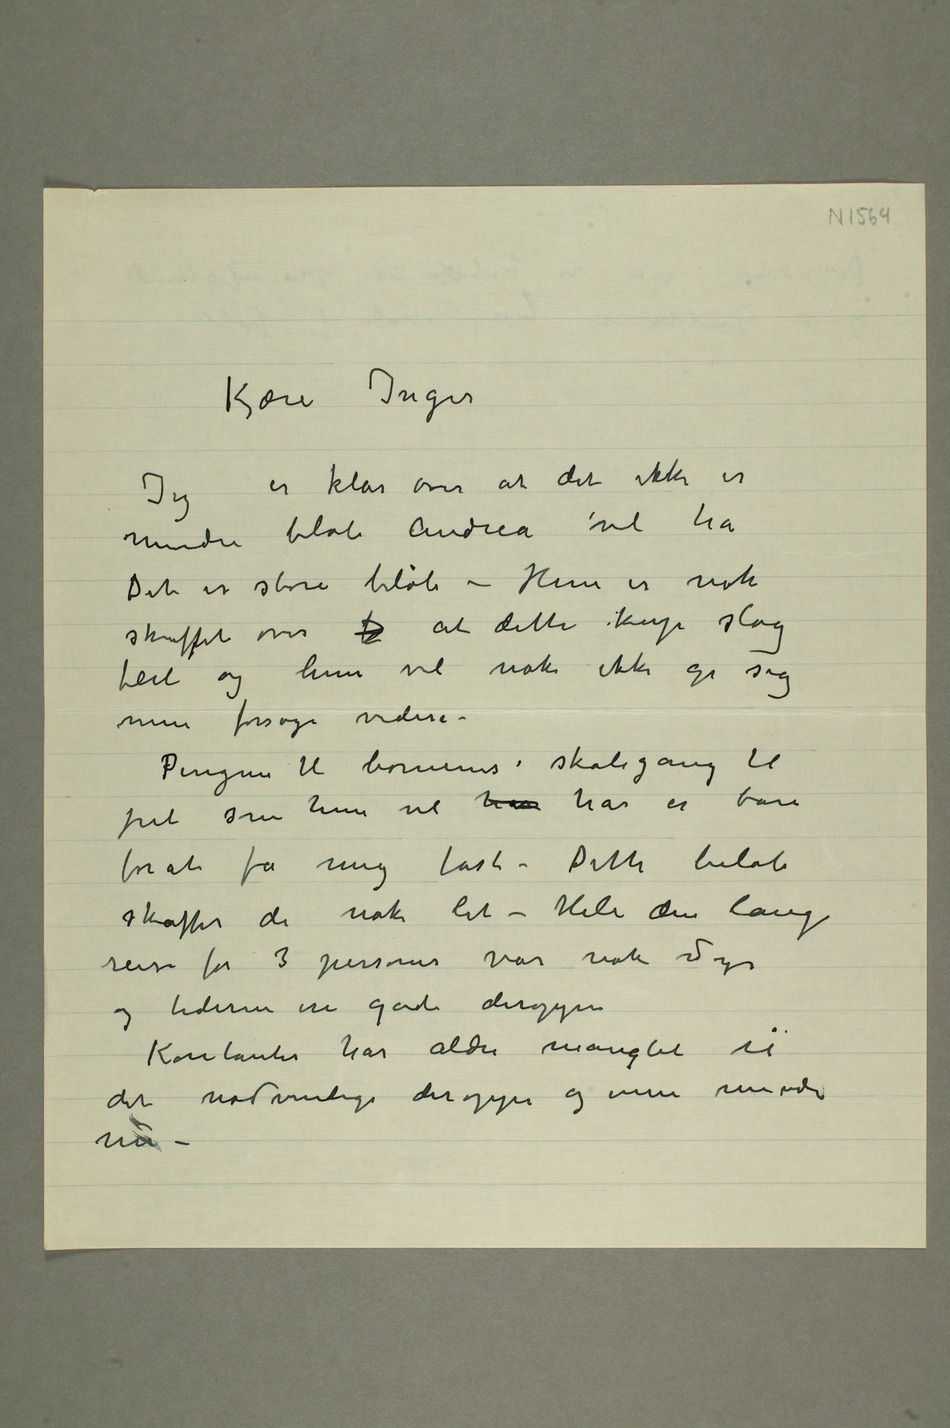 N 1564
Kjære Inger
Jeg er klar over at det ikke er
mindre beløb Andrea vil ha
Det er store beløb – Hun er nok
skuffet over D at dette kup slog
feil og hun vil nok ikke gi sig
men forsøge videre –
Pengene til børnenes skolegang til
juel som hun vil have har er bare
for at få mig fast – Dette beløb
skaffer de nok let – Hele den lange
reise for 3 personer var nok dyr
og tiderne ere gode deroppe
Kontanter har aldri manglet til
det nødvendige deroppe og end mindre
nu –